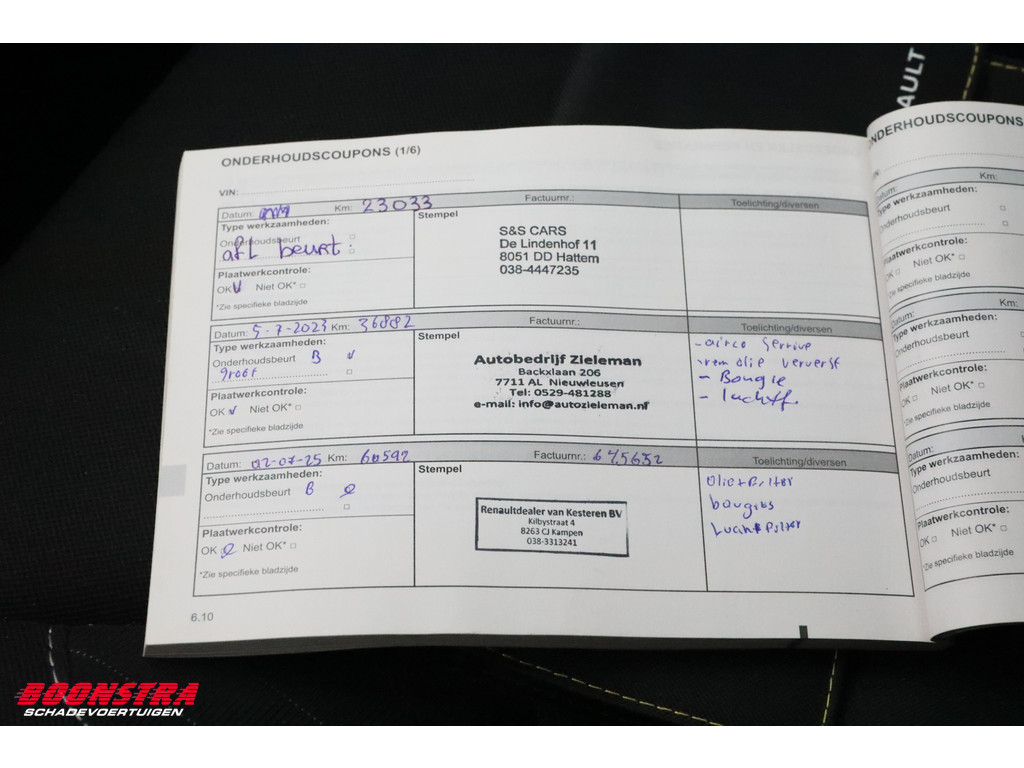 AULT
ONDERHOUDSCOUPONS (1/6)
VIN:
Datum: Km: 23033 Factuurnr.:
Type werkzaamheden:
Onderhoudsbeurt
afl beurt.
Plaatwerkcontrole:
OK Niet OK*
*Zie specifieke bladzijde
Stempel
S&S CARS
De Lindenhof 11
8051 DD Hattem
038-4447235
Toelichting/diversen
Datum: 5-7-2023 Km: 36882 Factuurnr.:
Type werkzaamheden:
Onderhoudsbeurt B
groot
Plaatwerkcontrole:
OK Niet OK*
*Zie specifieke bladzijde
Stempel
Autobedrijf Zieleman
Backxlaan 206
7711 AL Nieuwleusen
Tel: 0529-481288
e-mail: info@autozieleman.nl
Toelichting/diversen
- airco service
- rem olie ververst
- Bougie
- luchtf.
Datum: 02-07-25 Km: 60592 Factuurnr.: 675652
Type werkzaamheden:
Onderhoudsbeurt B
Plaatwerkcontrole:
OK Niet OK*
*Zie specifieke bladzijde
Stempel
Renaultdealer van Kesteren BV
Kilbystraat 4
8263 CJ Kampen
038-3313241
Toelichting/diversen
Olie+Filter
bougies
Luchtfilter
6.10
NDERHOUDSCOUPONS
Datum: Km:
Type werkzaamheden:
Onderhoudsbeurt
Plaatwerkcontrole:
OK Niet OK*
*Zie specifieke bladzijde
Km:
Type werkzaamheden:
Onderhoudsbeurt
Plaatwerkcontrole:
OK Niet OK*
*Zie specifieke bladzijde
Datum:
Type werkzaamheden:
Onderhoudsbeurt
Plaatwerkcontrole:
OK Niet OK*
*Zie specifieke bladzijde
BOONSTRA
SCHADEVOERTUIGEN